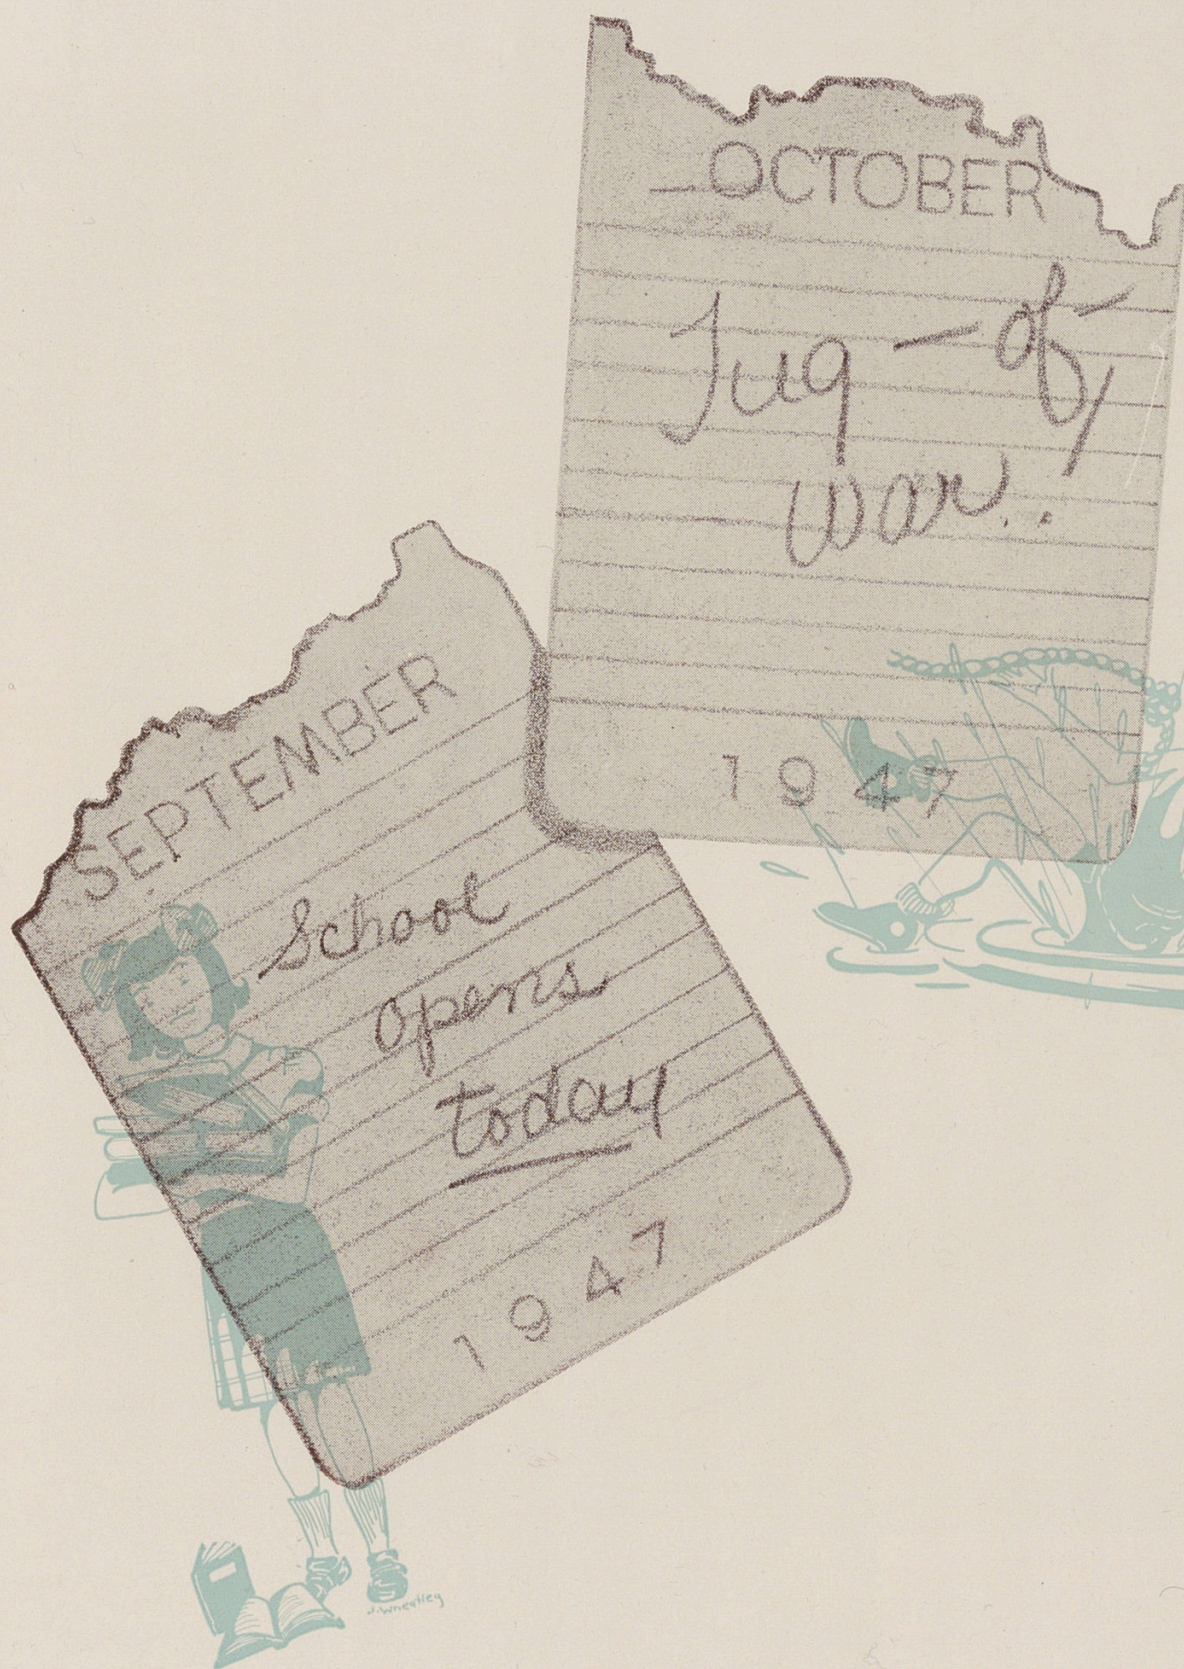 OCTOBER
Tug-of-
war!
1947
SEPTEMBER
School
opens
today
1947
J. Wheatley